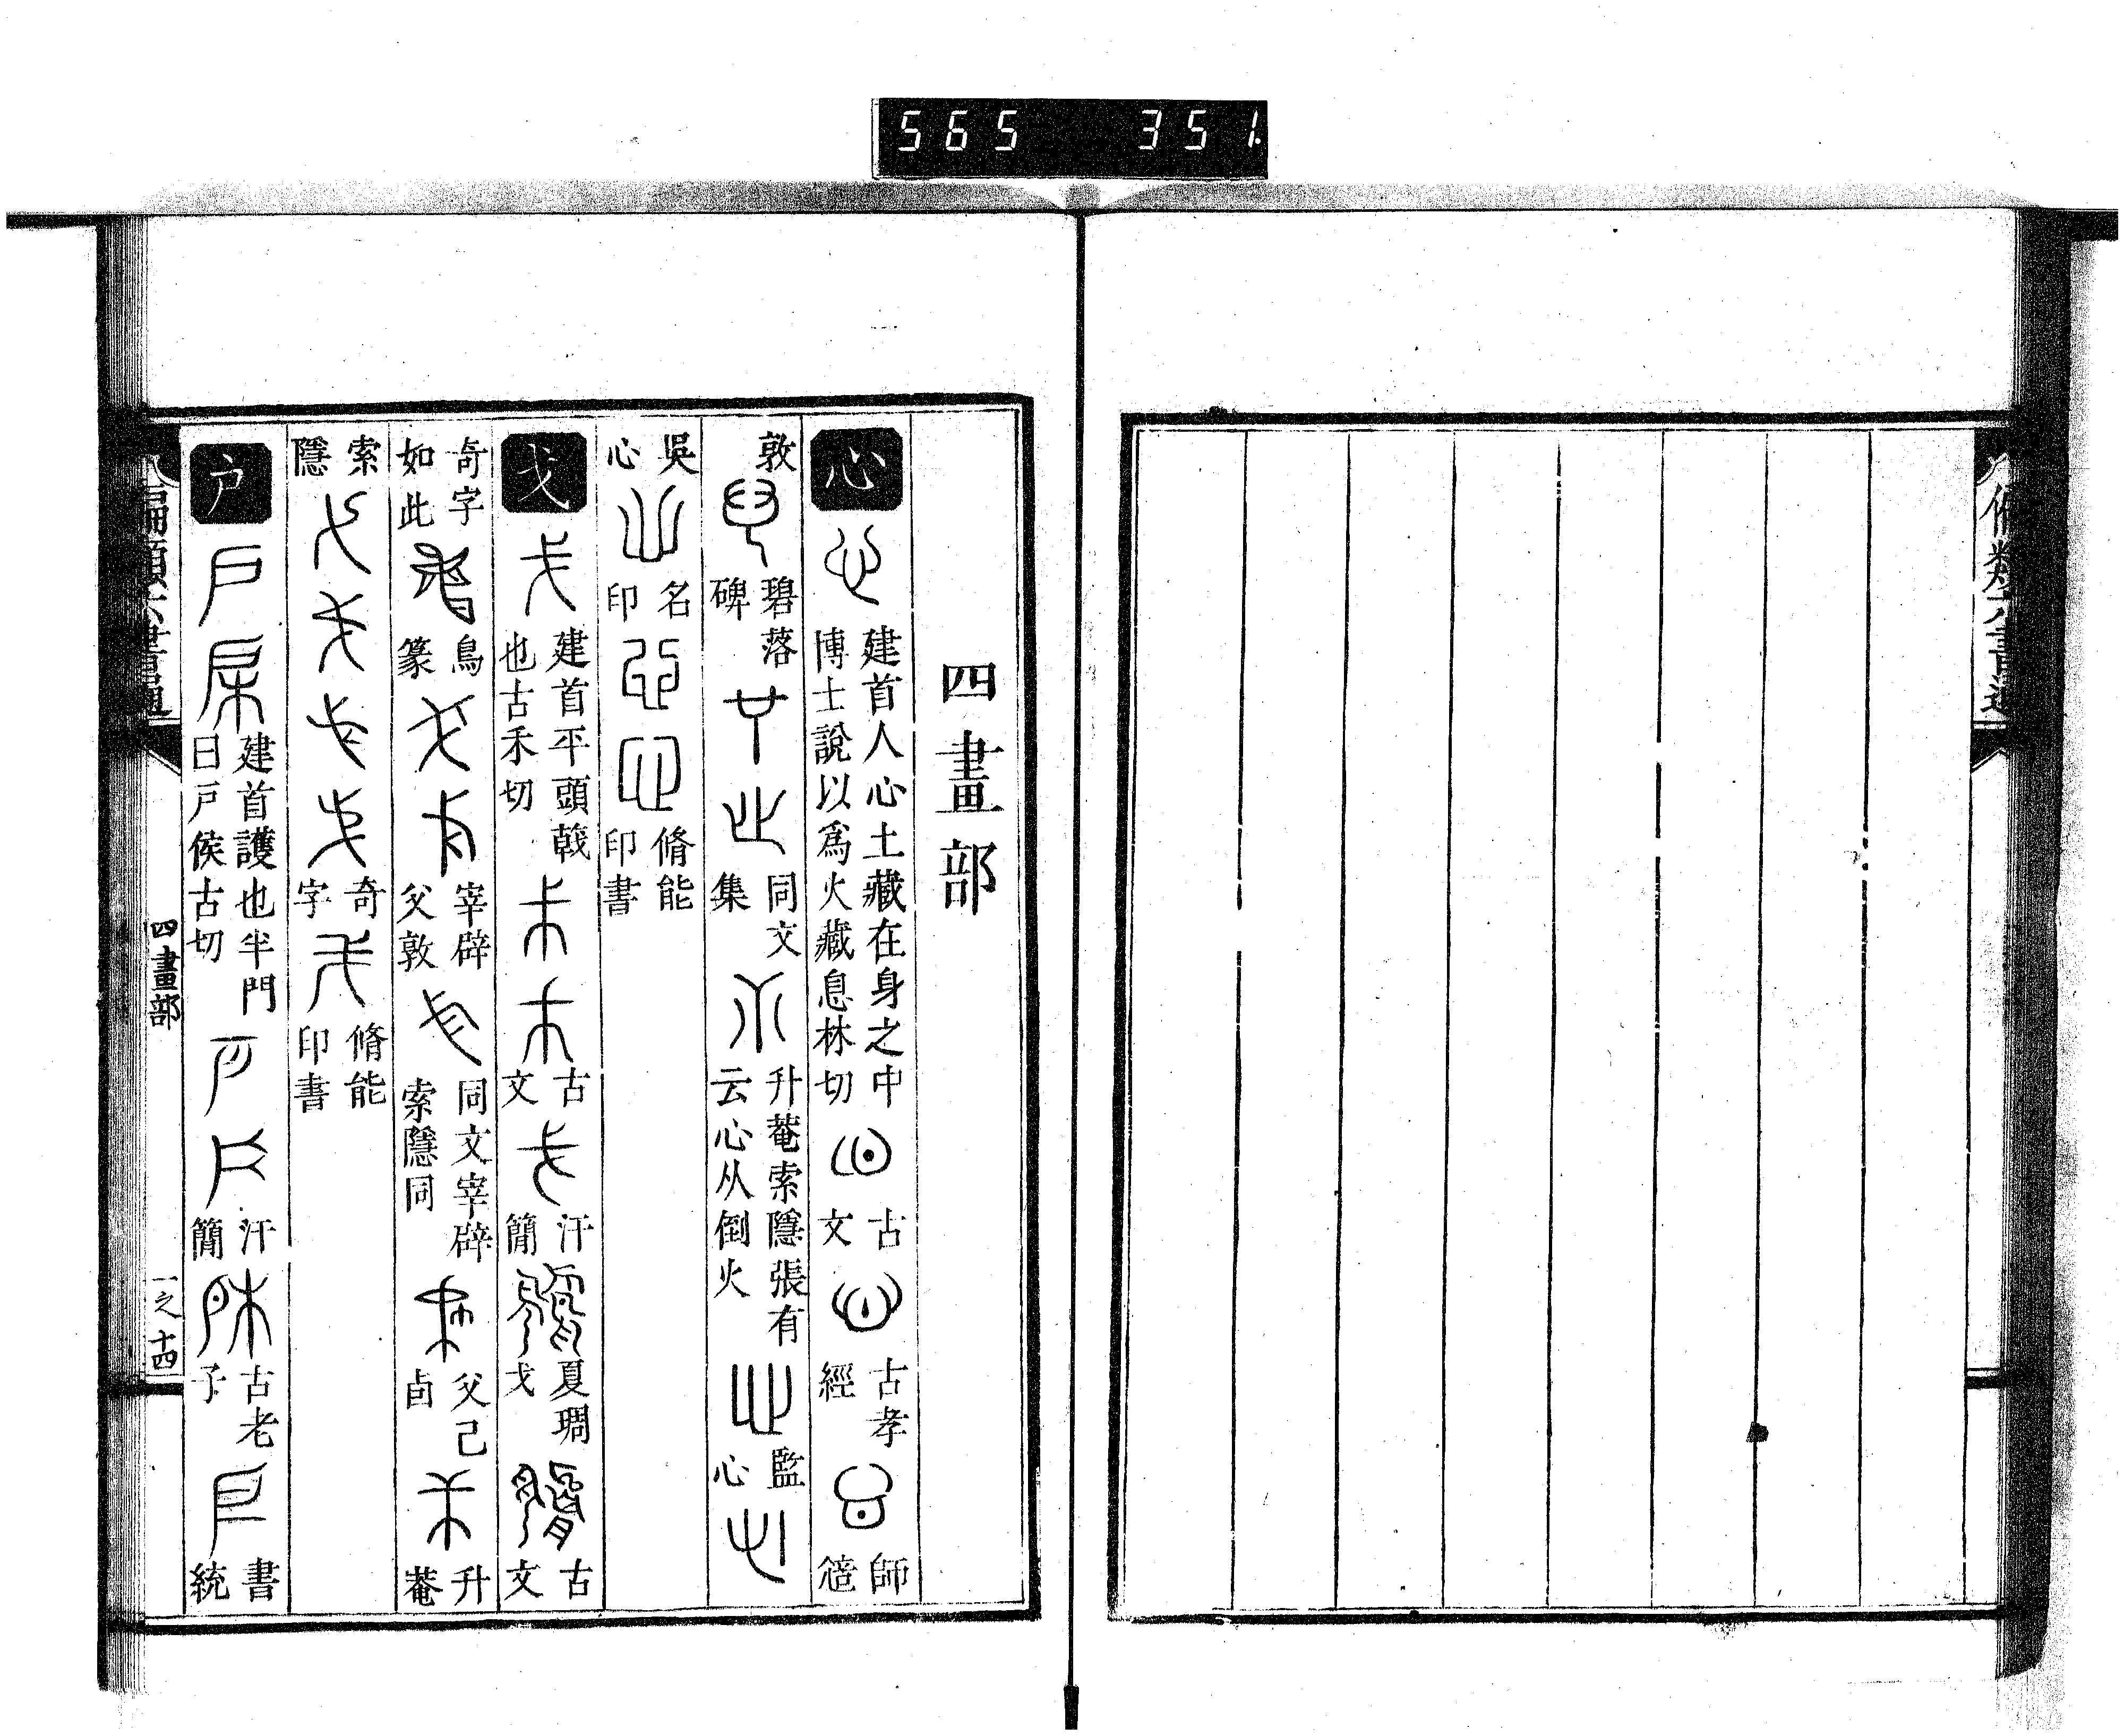 565 351
四畫部
心 建首人心土藏在身之中博士說以爲火藏息林切 古文 古孝經 師𩛥
敦 碧落碑 同文集 升菴索隱張有云心从倒火 監心
吳心 名印 脩能印書
戈 建首平頭戟也古禾切 古文 汗簡 夏琱戈 古文
奇字如此 鳥篆 宰辟父敦 同文宰辟索隱同 父己卣 升菴
索隱 奇字 脩能印書
户 建首護也半門曰戸侯古切 汗簡 古老子 書統
偏類六書通 四畫部 一之十四